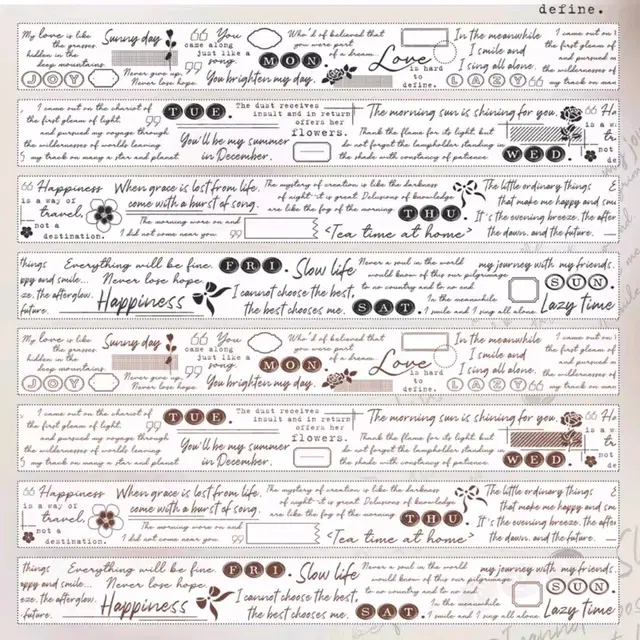 define.
My love is like
the grasses
hidden in the
deep mountains.
JOY
Sunny day
Never give up,
Never lose hope.
You
came along
just like a
song.
You brighten my day.
Who'd of believed that
you were part
of a dream.
MON.
Love
is hard
to
define.
In the meanwhile
I smile and
I sing all alone.
LAZY
I came out on
the first gleam of
the wildernesses of
my track on man
I came out on the chariot of
the first gleam of light,
and pursued my voyage through
the wildernesses of worlds leaving
my track on many a star and planet
TUE.
You'll be my summer
in December.
The dust receives
insult and in return
offers her
flowers.
The morning sun is shining for you.
Thank the flame for its light, but
do not forget the lampholder standing in
the shade with constancy of patience.
WED.
Ha
is a w
tr
not
de
Happiness
is a way of
travel,
not a
destination.
When grace is lost from life,
come with a burst of song.
The morning wore on and
I did not come near you.
The mystery of creation is like the darkness
of night--it is great. Delusions of knowledge
are like the fog of the morning
THU.
<Tea time at home>
The little ordinary things
that make me happy and smi
It's the evening breeze, the after
the dawn, and the future.
things
ppy and smile...
ze, the afterglow,
future.
Everything will be fine.
Never lose hope.
Happiness
FRI.
Slow life
I cannot choose the best,
the best chooses me.
Never a soul in the world
would know of this our pilgrimage
to no country and to no end.
SAT.
In the meanwhile
I smile and I sing all alone
my journey with my friends.
SUN.
Lazy time
My love is like
the grasses
hidden in the
deep mountains.
JOY
Sunny day
Never give up,
Never lose hope.
You
came along
just like a
song.
You brighten my day.
Who'd of believed that
you were part
of a dream.
MON.
Love
is hard
to
define.
In the meanwhile
I smile and
I sing all alone.
LAZY
I came out on
the first gleam of
the wildernesses of
my track on man
I came out on the chariot of
the first gleam of light,
and pursued my voyage through
the wildernesses of worlds leaving
my track on many a star and planet
TUE.
You'll be my summer
in December.
The dust receives
insult and in return
offers her
flowers.
The morning sun is shining for you.
Thank the flame for its light, but
do not forget the lampholder standing in
the shade with constancy of patience.
WED.
Ha
is a w
tr
not
de
Happiness
is a way of
travel,
not a
destination.
When grace is lost from life,
come with a burst of song.
The morning wore on and
I did not come near you.
The mystery of creation is like the darkness
of night--it is great. Delusions of knowledge
are like the fog of the morning
THU.
<Tea time at home>
The little ordinary things
that make me happy and smi
It's the evening breeze, the after
the dawn, and the future.
things
ppy and smile...
ze, the afterglow,
future.
Everything will be fine.
Never lose hope.
Happiness
FRI.
Slow life
I cannot choose the best,
the best chooses me.
Never a soul in the world
would know of this our pilgrimage
to no country and to no end.
SAT.
In the meanwhile
I smile and I sing all alone
my journey with my friends.
SUN.
Lazy time